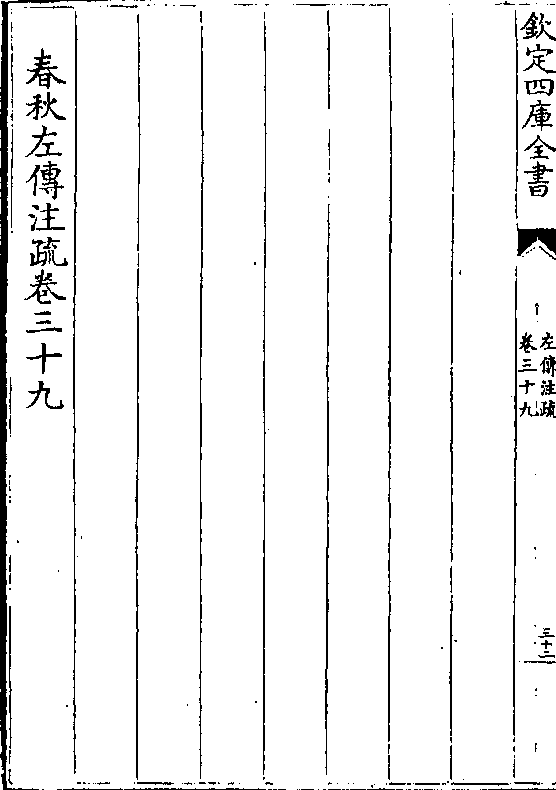 欽定四庫全書
左傳注疏
卷三十九
三十二
春秋左傳注疏卷三十九